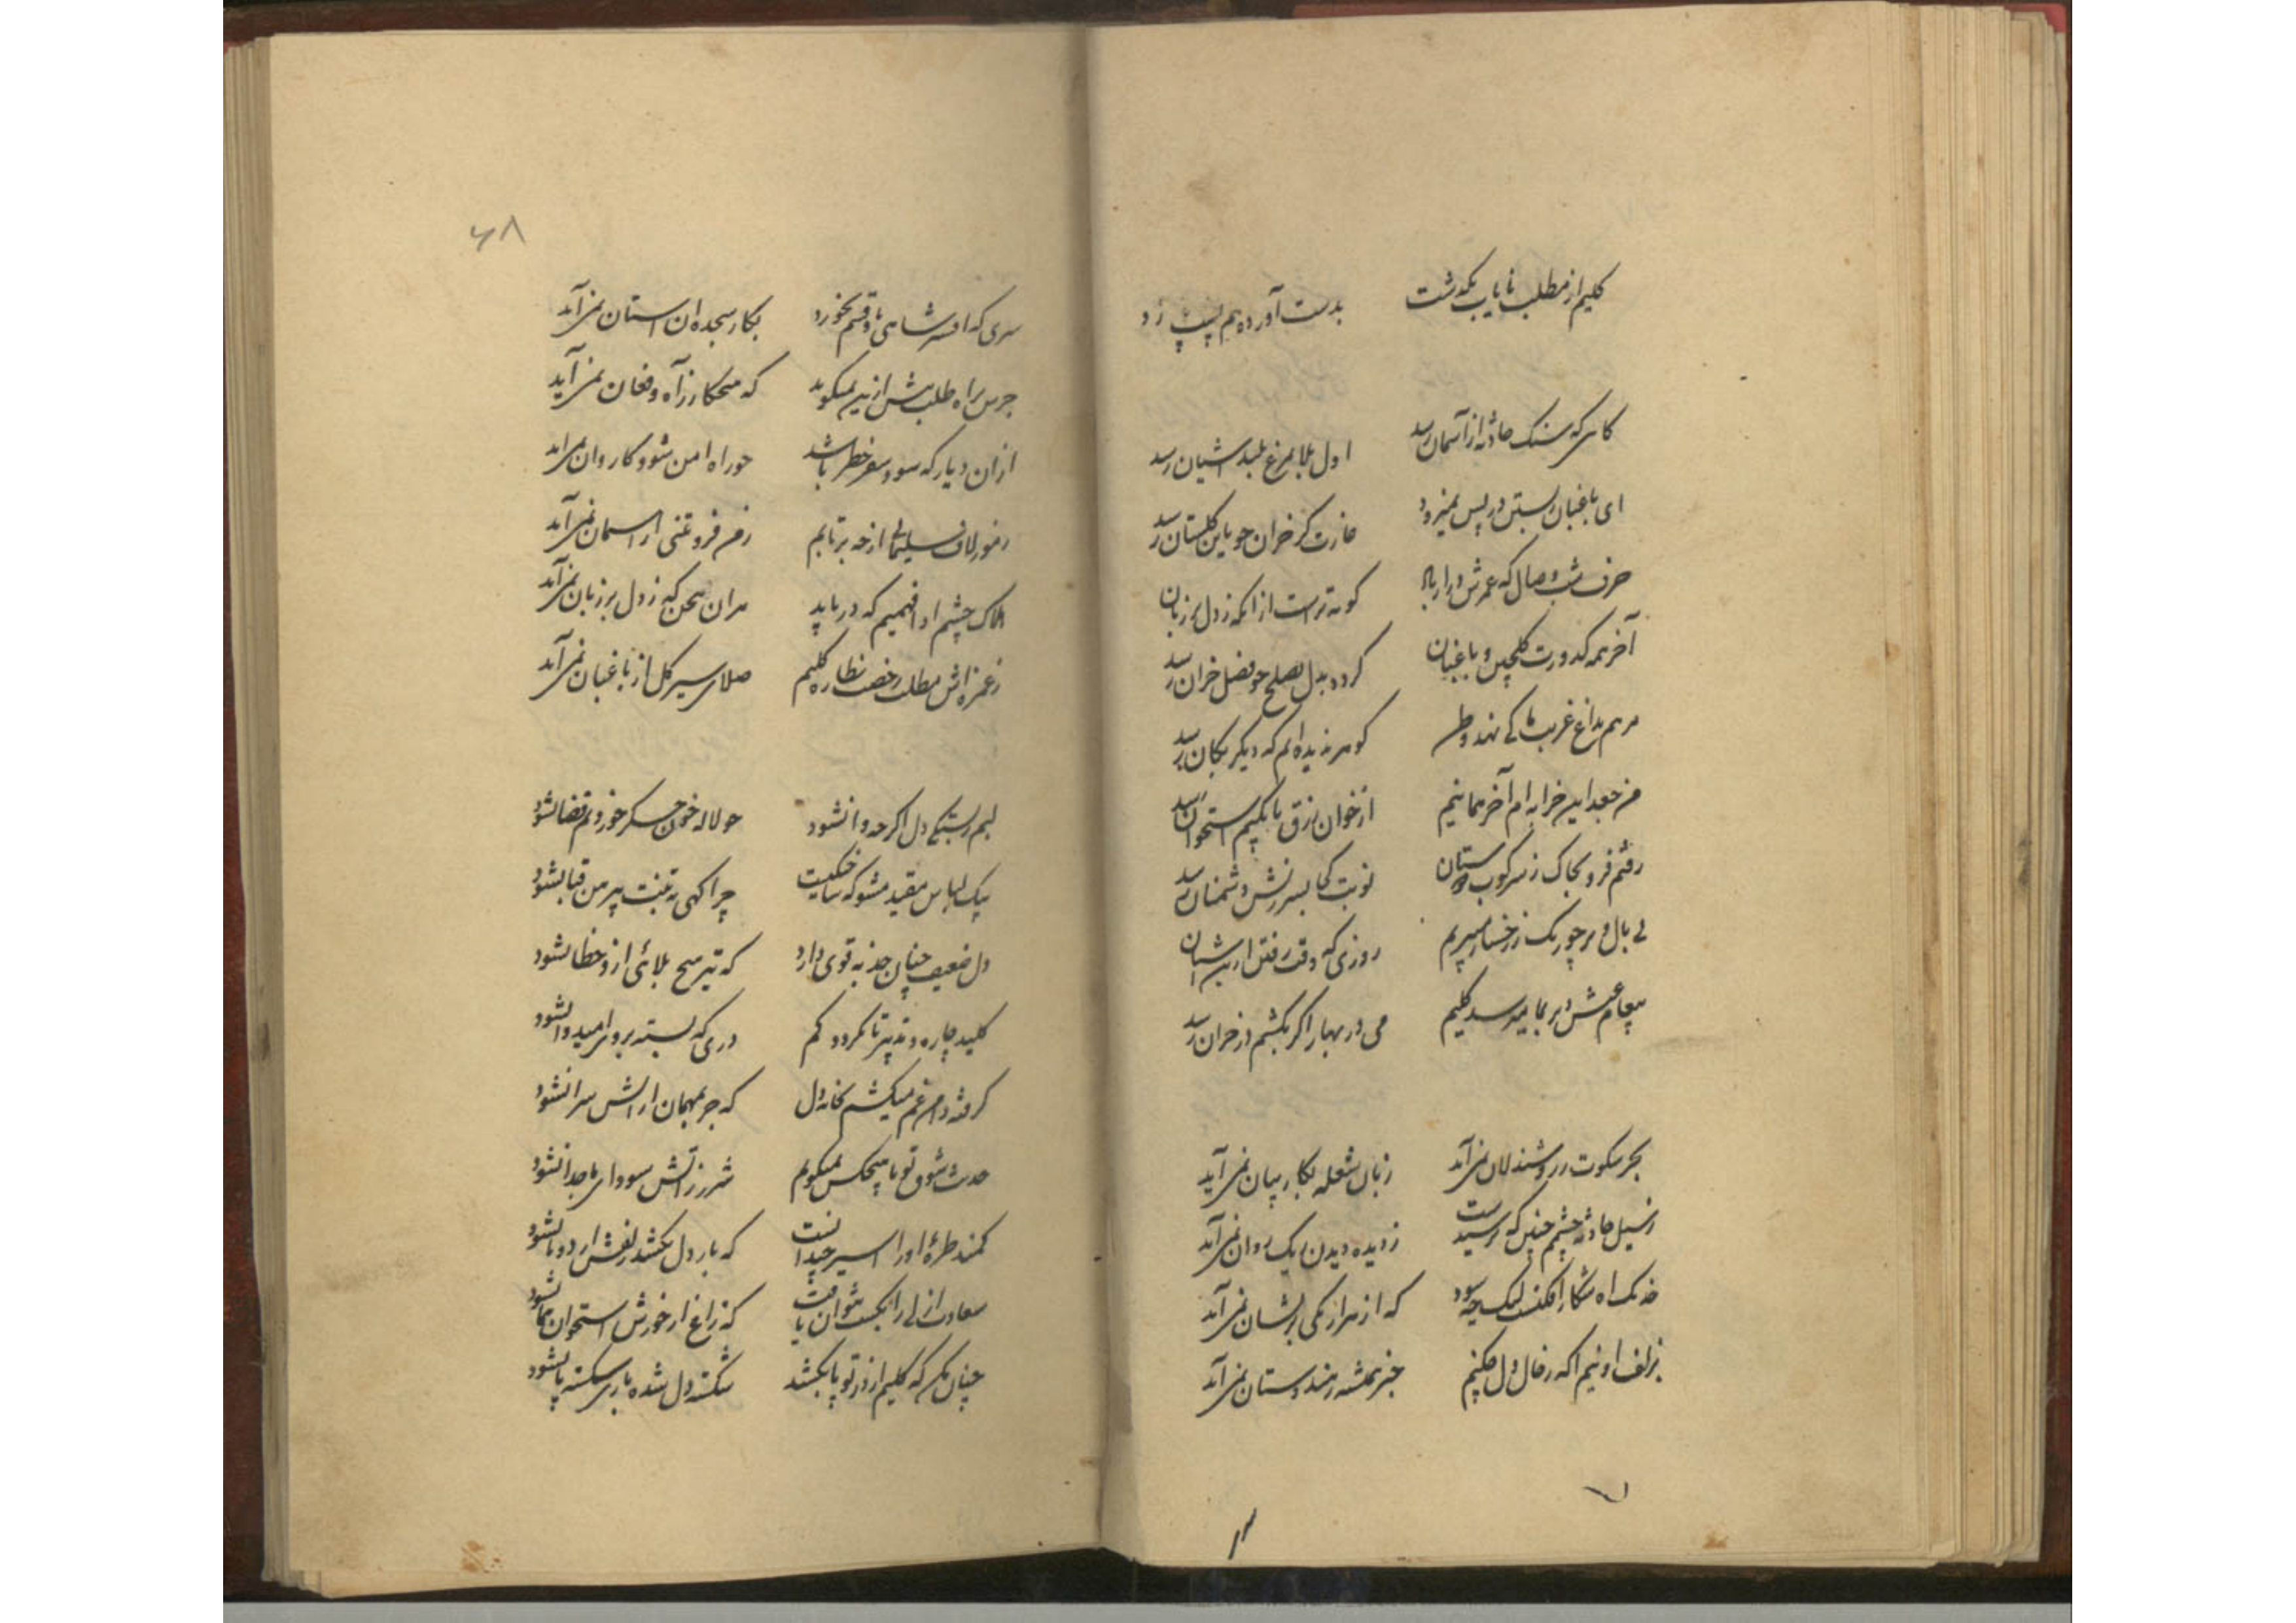 کلیم از مطلب نایاب بگذشت بدست آورده هم
کاهی که سنک حادثه از آسمان رسد اول بلا بمرغ بلند آشیان رسد
ای باغبان ز بستن در پس نمیرود غارت کر خزان چو باین کلستان رسد
حرف شب وصال که عمرش دراز باد کوته تر است از آنکه ز دل بر زبان
آخر همه کدورت کلچین و باغبان کردد بدل بصلح چو فصل خزان رسد
مرهم بداغ غربت ما کی نهد وطن کوهر ندیده ایم که دیکر بکان رسد
من جغد این خرابه ام آخر هما نیم از خوان رزق تا بکیم استخوان رسد
رفتم فرو بخاک ز سرکوب دوستان نوبت کجا بسرزنش دشمنان رسد
بی بال و پر چو رنک ز رخسار میپرم روزی که وقت رفتن ازین آشیان
پیغام عیش دیر بما میرسد کلیم می در بهار اگر بکشم در خزان رسد
بجز سکوت ز روشندلان نمی آید زبان شعله بکار بیان نمی آید
ز سیل حادثه چشمم چنین که ترسیدست ز دیده دیدن آب روان نمی آید
خدنک آه شکار افکنست لیک چه سود که از هزار یکی بر نشان نمی آید
بزلف او نیم آکه ز حال دل چکنم خبر همیشه ز هندوستان نمی آید
۶۸
سری که افسر شاهی باو قسم نخورد بکار سجده آن آستان نمی آید
جرس براه طلب بیش ازین نمیکوید که هیچکار ز آه و فغان نمی آید
ازان دیار که سود سفر خطر باشد چو راه امن شود کاروان نمی آید
ز مور لاف سلیمانی ار چه برتابم ز من فروتنی از آسمان نمی آید
هلاک چشم ادا فهمیم که دریابد هر آن سخن که ز دل بر زبان نمی آید
ز غمزه اش مطلب رخصت نظاره کلیم صلای سیر کل از باغبان نمی آید
لبم ز بستکی دل اکر چه وا نشود چو لاله خون جکر خوردنم قضا نشود
بیک لباس مقید مشو که ساختکیست چرا کهی بتنت پیرهن قبا نشود
دل ضعیف چنان جذبه قوی دارد که تیر هیچ بلائی ازو خطا نشود
کلید چاره و تدبیر تا نکردد کم دری که بسته بروی امید وا نشود
کرفته دامن غم میکشم بخانه دل که جز بمهمان آرایش سرا نشود
حدیث شوق تو با هیچکس نمیکویم شرر ز آتش سودای ما جدا نشود
کمند طره او را اسیر چندانست که بار دل نکشد زلفش ار دو تا نشود
سعادت ازلی را بکسب نتوان یافت که زاغ از خورش استخوان هما نشود
چنان مکن که کلیم از در تو پا بکشد شکسته دل شده باری شکسته پا نشود